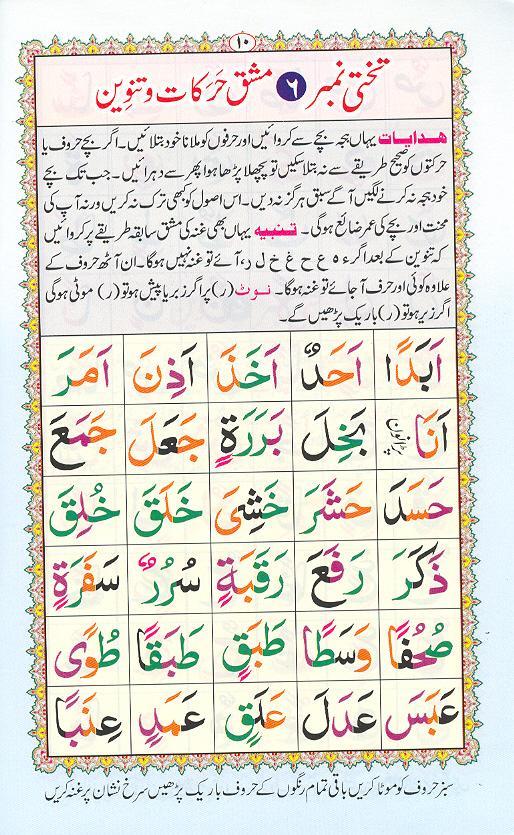 ۱۰
تختی نمبر ۶ مشق حرکات و تنوین
ھدایات یہاں ہجہ بچے سے کروائیں اور حرفوں کو ملانا خود بتلائیں۔ اگر بچے حروف یا
حرکتوں کو صحیح طریقے سے نہ بتلا سکیں تو پچھلا پڑھا ہوا پھر سے دہرائیں۔ جب تک بچے
خود ہجہ نہ کرنے لگیں آگے سبق ہرگز نہ دیں۔ اس اصول کو کبھی ترک نہ کریں ورنہ آپ کی
محنت اور بچے کی عمر ضائع ہوگی۔ تنبیہ یہاں بھی غنہ کی مشق سابقہ طریقے پر کروائیں
کہ تنوین کے بعد اگر ء ہ ع ح غ خ ل ر، آئے تو غنہ نہیں ہوگا۔ ان آٹھ حروف کے
علاوہ کوئی اور حرف آجائے تو غنہ ہوگا۔ نوٹ (ر) پر اگر زبر یا پیش ہو تو (ر) موٹی ہوگی
اگر زیر ہو تو (ر) باریک پڑھیں گے۔
اَبَدًا اَحَدٌ اَخَذَ اَذِنَ اَمَرَ
اَنَا بَخِلَ بَرَرَةٍ جَعَلَ جَمَعَ
حَسَدَ حَشَرَ خَشِىَ خَلَقَ خُلِقَ
ذَكَرَ رَفَعَ رَقَبَةٍ سُرُرٌ سَفَرَةٍ
صُحُفًا وَسَطًا طَبَقٍ طَبَقًا طُوًى
عَبَسَ عَدَلَ عَلَقٍ عَمَدٍ عِنَبًا
سبز حروف کو موٹا کریں باقی تمام رنگوں کے حروف باریک پڑھیں سرخ نشان پر غنہ کریں